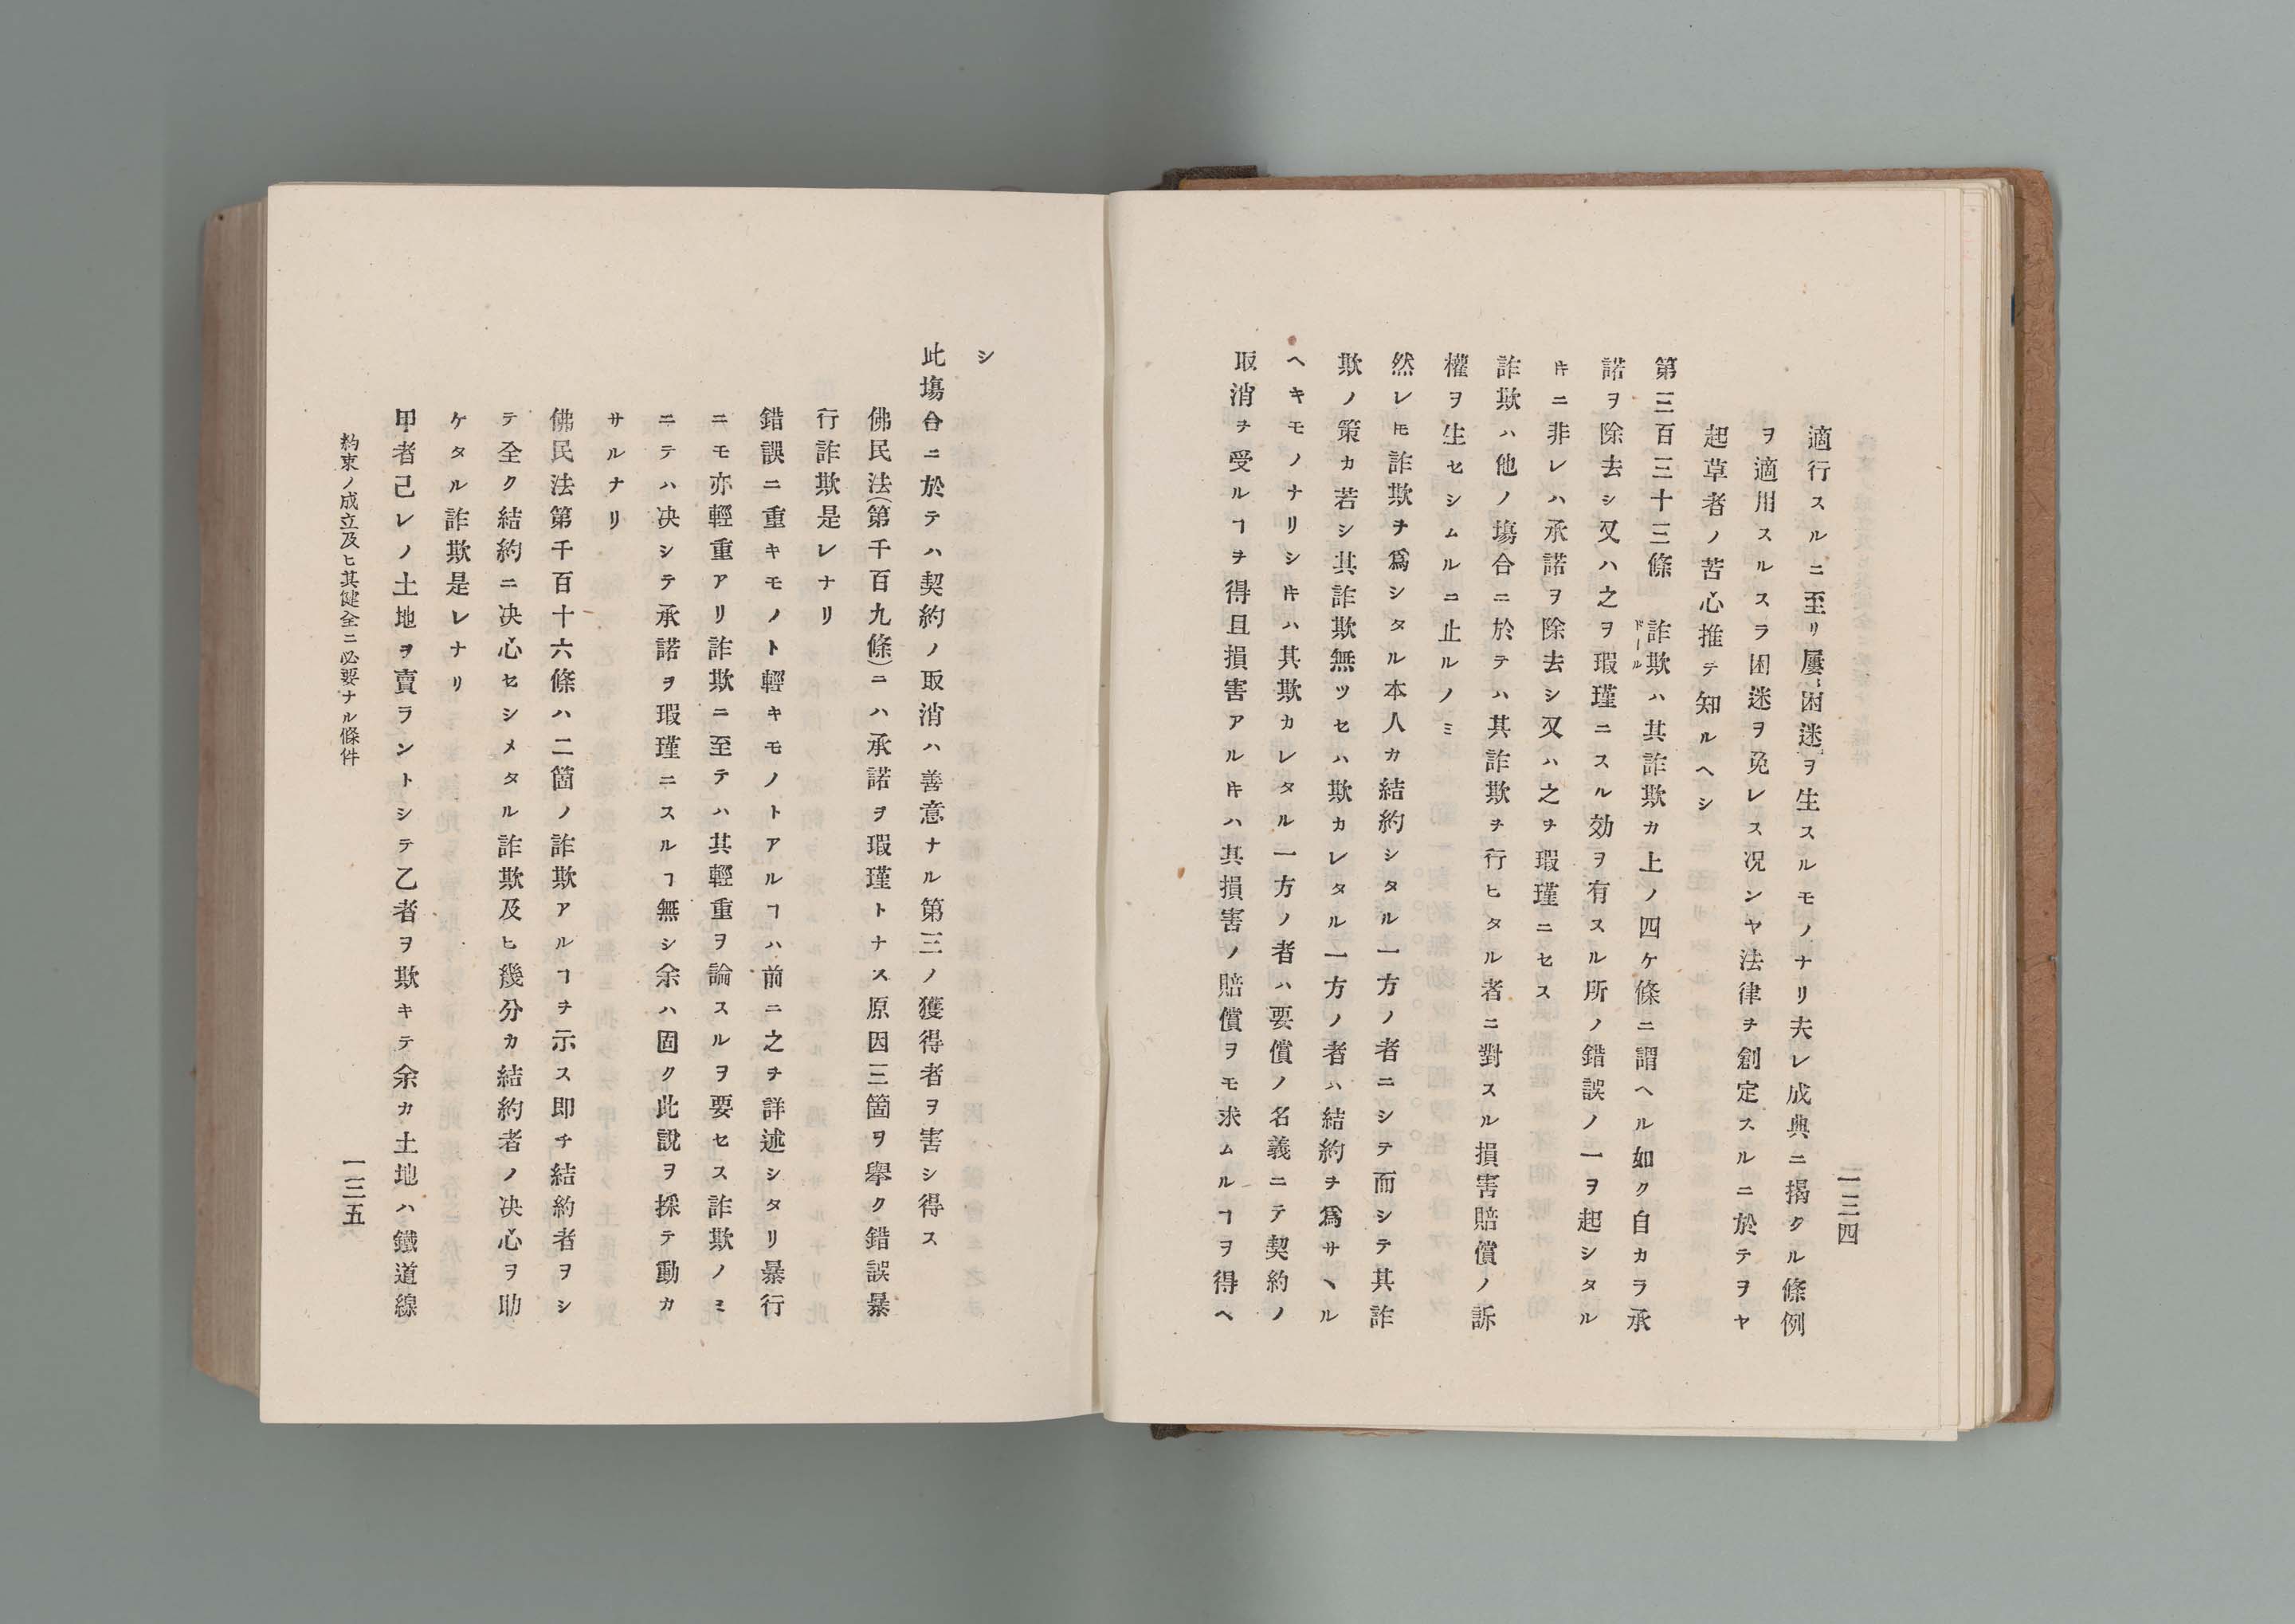 一三四
適行スルニ至リ屢〻困迷ヲ生スルモノナリ夫レ成典ニ揭クル條例
ヲ適用スルスラ困迷ヲ免レス况ンヤ法律ヲ創定スルニ於テヲヤ
起草者ノ苦心推テ知ルヘシ
第三百三十三條 詐欺ハ其詐欺カ上ノ四ケ條ニ謂ヘル如ク自カラ承
ドール
諾ヲ除去シ又ハ之ヲ瑕瑾ニスル効ヲ有スル所ノ錯誤ノ一ヲ起シタル
𪜈ニ非レハ承諾ヲ除去シ又ハ之ヲ瑕瑾ニセス
詐欺ハ他ノ塲合ニ於テハ其詐欺ヲ行ヒタル者ニ對スル損害賠償ノ訴
權ヲ生セシムルニ止ルノミ
然レ𪜈詐欺ヲ爲シタル本人カ結約シタル一方ノ者ニシテ而シテ其詐
欺ノ策カ若シ其詐欺無ツセハ欺カレタル一方ノ者ハ結約ヲ爲サヽル
ヘキモノナリシ𪜈ハ其欺カレタル一方ノ者ハ要償ノ名義ニテ契約ノ
取消ヲ受ルヿヲ得且損害アル𪜈ハ其損害ノ賠償ヲモ求ムルヿヲ得ヘ
シ
此塲合ニ於テハ契約ノ取消ハ善意ナル第三ノ獲得者ヲ害シ得ス
佛民法(第千百九條)ニハ承諾ヲ瑕瑾トナス原因三箇ヲ擧ク錯誤暴
行詐欺是レナリ
錯誤ニ重キモノト輕キモノトアルヿハ前ニ之ヲ詳述シタリ暴行
ニモ亦輕重アリ詐欺ニ至テハ其輕重ヲ論スルヲ要セス詐欺ノミ
ニテハ决シテ承諾ヲ瑕瑾ニスルヿ無シ余ハ固ク此說ヲ採テ動カ
サルナリ
佛民法第千百十六條ハ二箇ノ詐欺アルヿヲ示ス即チ結約者ヲシ
テ全ク結約ニ决心セシメタル詐欺及ヒ幾分カ結約者ノ决心ヲ助
ケタル詐欺是レナリ
甲者己レノ土地ヲ賣ラントシテ乙者ヲ欺キテ余カ土地ハ鐵道線
約束ノ成立及ヒ其健全ニ必要ナル條件
一三五